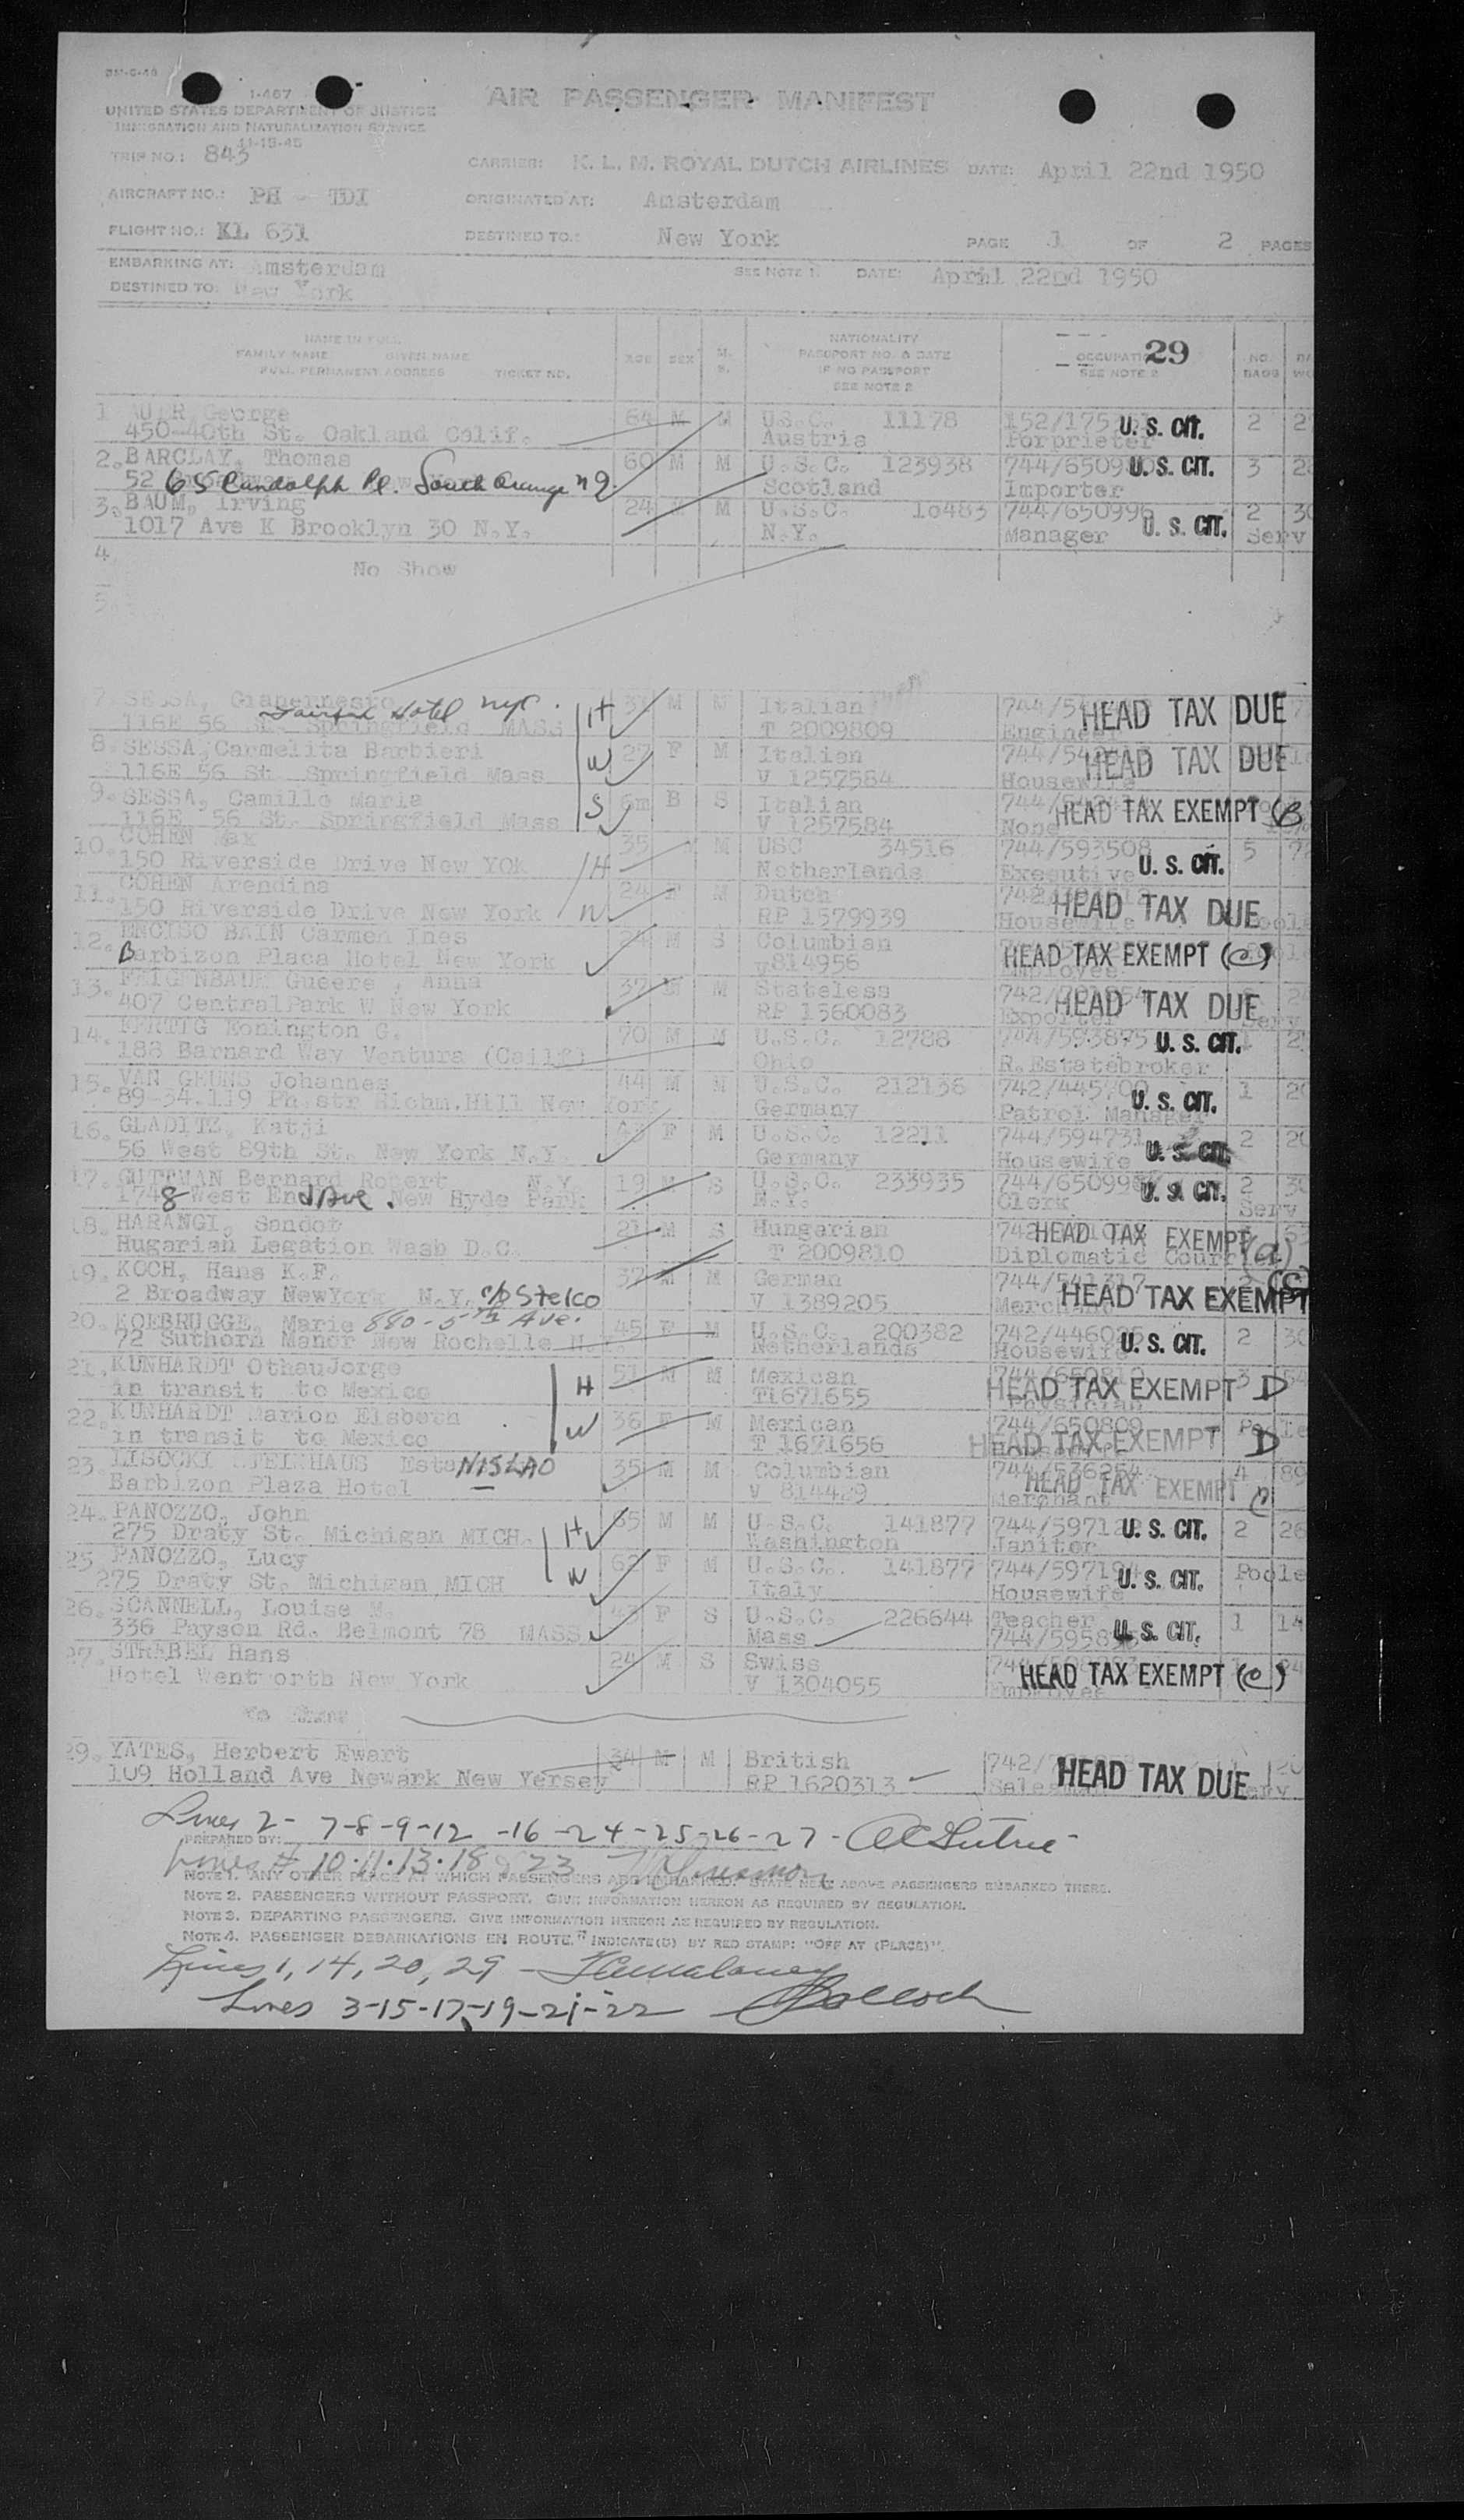 I-467
UNITED STATES DEPARTMENT OF JUSTICE
IMMIGRATION AND NATURALIZATION SERVICE
11-19-45
AIR PASSENGER MANIFEST
TRIP NO.: 843 CARRIER: K. L. M. ROYAL DUTCH AIRLINES DATE: April 22nd 1950
AIRCRAFT NO.: PH - TDI ORIGINATED AT: Amsterdam
FLIGHT NO.: KL 631 DESTINED TO.: New York PAGE 1 OF 2 PAGES
EMBARKING AT: Amsterdam SEE NOTE 1. DATE: April 22nd 1950
DESTINED TO: New York
NAME IN FULL NATIONALITY
FAMILY NAME GIVEN NAME AGE SEX M. PASSPORT NO. & DATE OCCUPATI 29 NO.
FULL PERMANENT ADDRESS TICKET NO. S. IF NO PASSPORT SEE NOTE 2 BAGS
SEE NOTE 2
1 AUER George 64 M M U.S.C. 11178 152/175 U. S. CIT. 2 2
450-40th St. Oakland Calif. Austria Porprieter
2. BARCLAY, Thomas 60 M M U.S.C. 123938 744/6509 U. S. CIT. 3 2
52 65 Randolph Pl. South Orange NJ. Scotland Importer
3. BAUM, Irving 24 M M U.S.C. 10483 744/650996 2 30
1017 Ave K Brooklyn 30 N.Y. N.Y. Manager U. S. CIT. Serv
4.
No Show
7. SESSA, Gianernesto Hotel NYC. H M M Italian 744/5 HEAD TAX DUE
116E 56 St. Springfield MASS T 2009809 Engineer
8. SESSA, Carmelita Barbieri W 27 F M Italian 744/54 HEAD TAX DUE
116E 56 St. Springfield Mass V 1257584 Housewife
9. SESSA, Camillo Maria S 6m B S Italian 744/ HEAD TAX EXEMPT (B
116E 56 St. Springfield Mass V 1257584 None
10. COHEN Max 35 M USC 34516 744/593508 5
150 Riverside Drive New YOk H Netherlands Executive U. S. CIT.
11. COHEN Arendina 24 F M Dutch 742/ HEAD TAX DUE
150 Riverside Drive New York W RP 1579939 Housewife
12. ENCISO BAIN Carmen Ines M S Columbian HEAD TAX EXEMPT (C)
Barbizon Placa Hotel New York V814956 Employee
13. FEIGENBAUM Gucere, Anna 37 M Stateless 742/ HEAD TAX DUE
407 CentralPark W New York RP 1560083 Exporter Serv
14. FERTIG Eonington G. 70 M M U.S.C. 12788 744/593875 U. S. CIT.
188 Barnard Way Ventura (Calif) Ohio R.Estatebroker
15. VAN GEUNS Johannes 44 M M U.S.C. 212136 742/445 U. S. CIT. 1 20
89-34.119 Ph str Richn.Hill New York Germany Patrol Manager
16. GLADITZ, Katji F M U.S.C. 12211 744/594731 2 20
56 West 89th St. New York N.Y. Germany Housewife U. S. CIT.
17. GUTTMAN Bernard Robert N.Y. 19 M S U.S.C. 233935 744/65099 U. S. CIT. 2 30
174 8 West End Ave. New Hyde Park N.Y. Clerk Serv
18. HARANGI, Sandor 21 M S Hungarian 742 HEAD TAX EXEMPT (a)
Hugarian Legation Wash D.C. T 2009810 Diplomatic Courrier
19. KOCH, Hans K.F. 37 M M German 744/541317 (C)
2 Broadway NewYork N.Y. c/o Stelco V 1389205 Merchant HEAD TAX EXEMPT
20. KOEBRUGGE, Marie 880-5th Ave. 45 F M U.S.C. 200382 742/446025 U. S. CIT. 2 30
72 Suthorn Manor New Rochelle N. Netherlands Housewife
21. KUNHARDT OthauJorge 51 M M Mexican 744/650810 3
in transit to Mexico H T1671655 Physician HEAD TAX EXEMPT D
22. KUNHARDT Marion Elsbeth 36 F M Mexican 744/650809
in transit to Mexico W T 1671656 HEAD TAX EXEMPT D
23. LISOCKI FELDHAUS Esta NISLAO 35 M M Columbian 744/536254 4 89
Barbizon Plaza Hotel V 814429 Merchant HEAD TAX EXEMPT C
24. PANOZZO, John H 65 M M U.S.C. 141877 744/5971 U. S. CIT. 2 26
275 Draty St. Michigan MICH. Washington Janitor
25. PANOZZO, Lucy W 62 F M U.S.C. 141877 744/597194 U. S. CIT. Poole
275 Draty St. Michigan MICH Italy Housewife
26. SCANNELL, Louise M. F S U.S.C. 226644 Teacher U. S. CIT. 1 14
336 Payson Rd. Belmont 78 MASS Mass 744/5958
27. STRABEL Hans 24 M S Swiss 744 HEAD TAX EXEMPT (C)
Hotel Wentworth New York V 1304055 Employee
No Show
29. YATES, Herbert Ewart 34 M M British 742/ HEAD TAX DUE
109 Holland Ave Newark New Yersey RP 1620313 Salesman
Lines 2- 7-8-9-12 -16-24-25-26-27-
PREPARED BY:
Lines # 10.11.13.18 & 23
NOTE 1. ANY OTHER PLACE AT WHICH PASSENGERS ARE EMBARKED. STATE NEXT ABOVE PASSENGERS EMBARKED THERE.
NOTE 2. PASSENGERS WITHOUT PASSPORT. GIVE INFORMATION HEREON AS REQUIRED BY REGULATION.
NOTE 3. DEPARTING PASSENGERS. GIVE INFORMATION HEREON AS REQUIRED BY REGULATION.
NOTE 4. PASSENGER DEBARKATIONS EN ROUTE, INDICATE(D) BY RED STAMP: "OFF AT (PLACE)".
Lines 1, 14, 20, 29 -
Lines 3-15-17-19-21-22